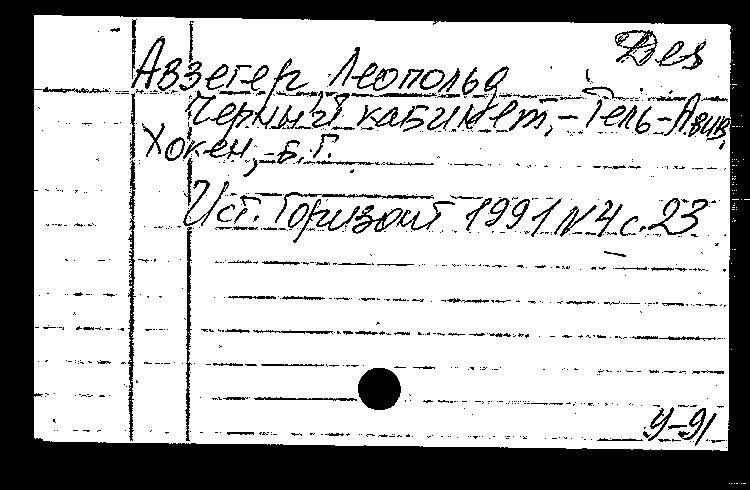 Дез
Аззегер Леопольд
Черный кабинет, - Тель-Авив,
Хокен, б.г.
Ист. Горизонт 1991 N4 с.23
У-91